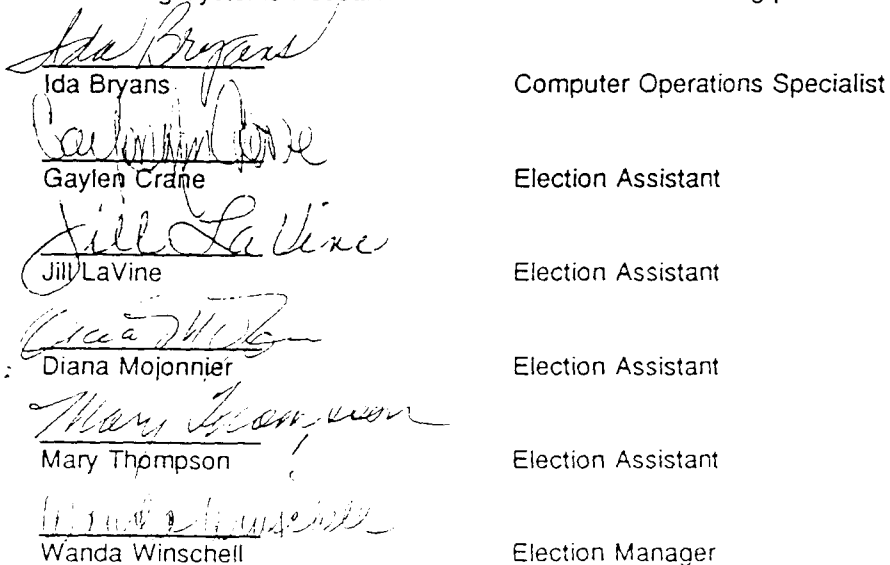 Ida Bryans
Ida Bryans Computer Operations Specialist
Gaylen Crane Election Assistant
Jill LaVine
Jill LaVine Election Assistant
Diana Mojonnier Election Assistant
Mary Thompson
Mary Thompson Election Assistant
Wanda Winschell
Wanda Winschell Election Manager